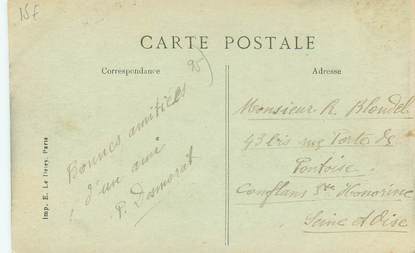 15f
CARTE POSTALE
Correspondance
95
Adresse
Bonnes amitiés
d'un ami
P. Desmorat
Monsieur R. Blondel
43 bis rue Porte de
Pontoise
Conflans Ste Honorine
Seine et Oise
Imp. E. Le Deley, Paris